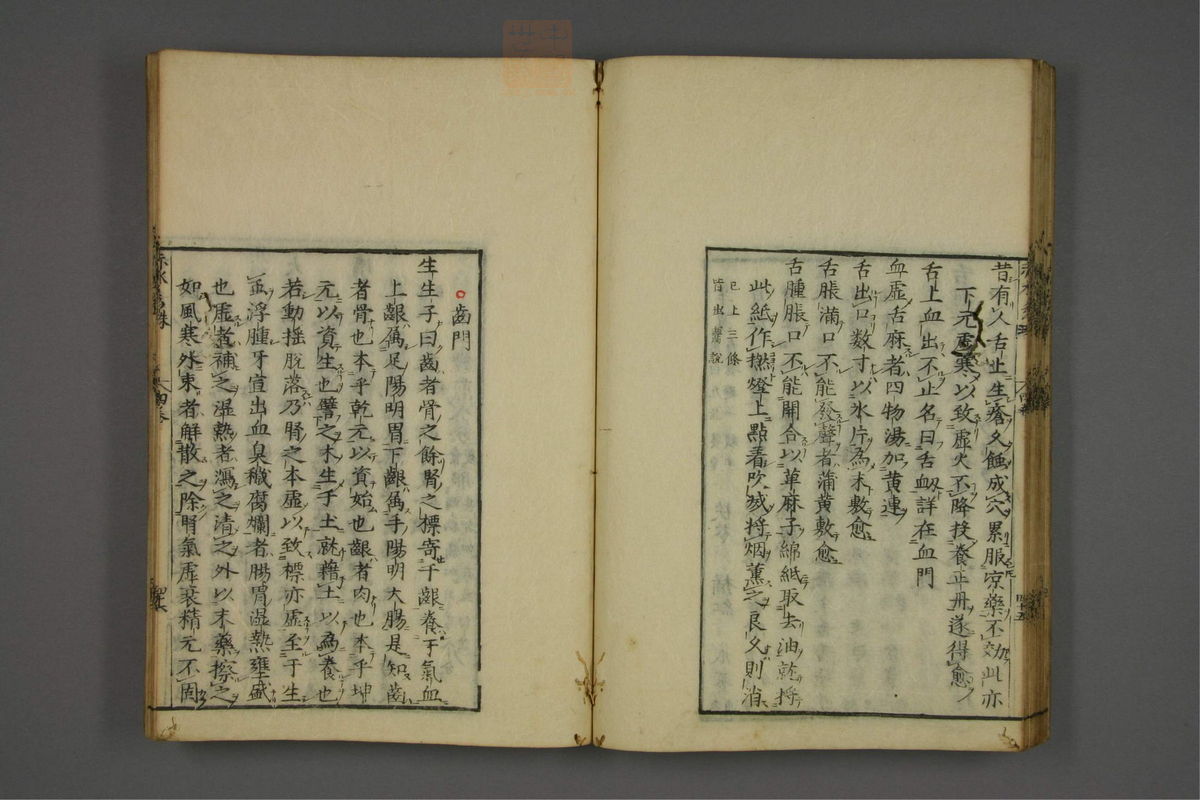 昔有人舌上生瘡久蝕成穴累服凉藥不効此亦
下元虚寒以致虚火不降投養正丹遂得愈
舌上血出不止名曰舌衄詳在血門
血虚舌麻者四物湯加黄連
舌出口数寸以氷片為末敷愈
舌脹滿口不能發聲者蒲黄敷愈
舌腫脹口不能開合以萆麻子綿紙取去油乾將
此紙作撚燈上點着吹滅將烟薫之良久則消
已上三條
皆出
齒門
生生子曰齒者骨之餘腎之標寄于齦養于氣血
上齦爲足陽明胃下齦爲手陽明大腸是知齒
者骨也本乎乾元以資始也齦者肉也本乎坤
元以資生也譬之木生于土就藉土以為養也
若動揺脫落乃腎之本虚以致標亦虚至于生
䘌浮腫牙宣出血臭穢腐爛者腸胃湿熱壅盛
也虚者補之湿熱者瀉之清之外以末藥擦之
如風寒外束者解散之除腎氣虚衰精元不固